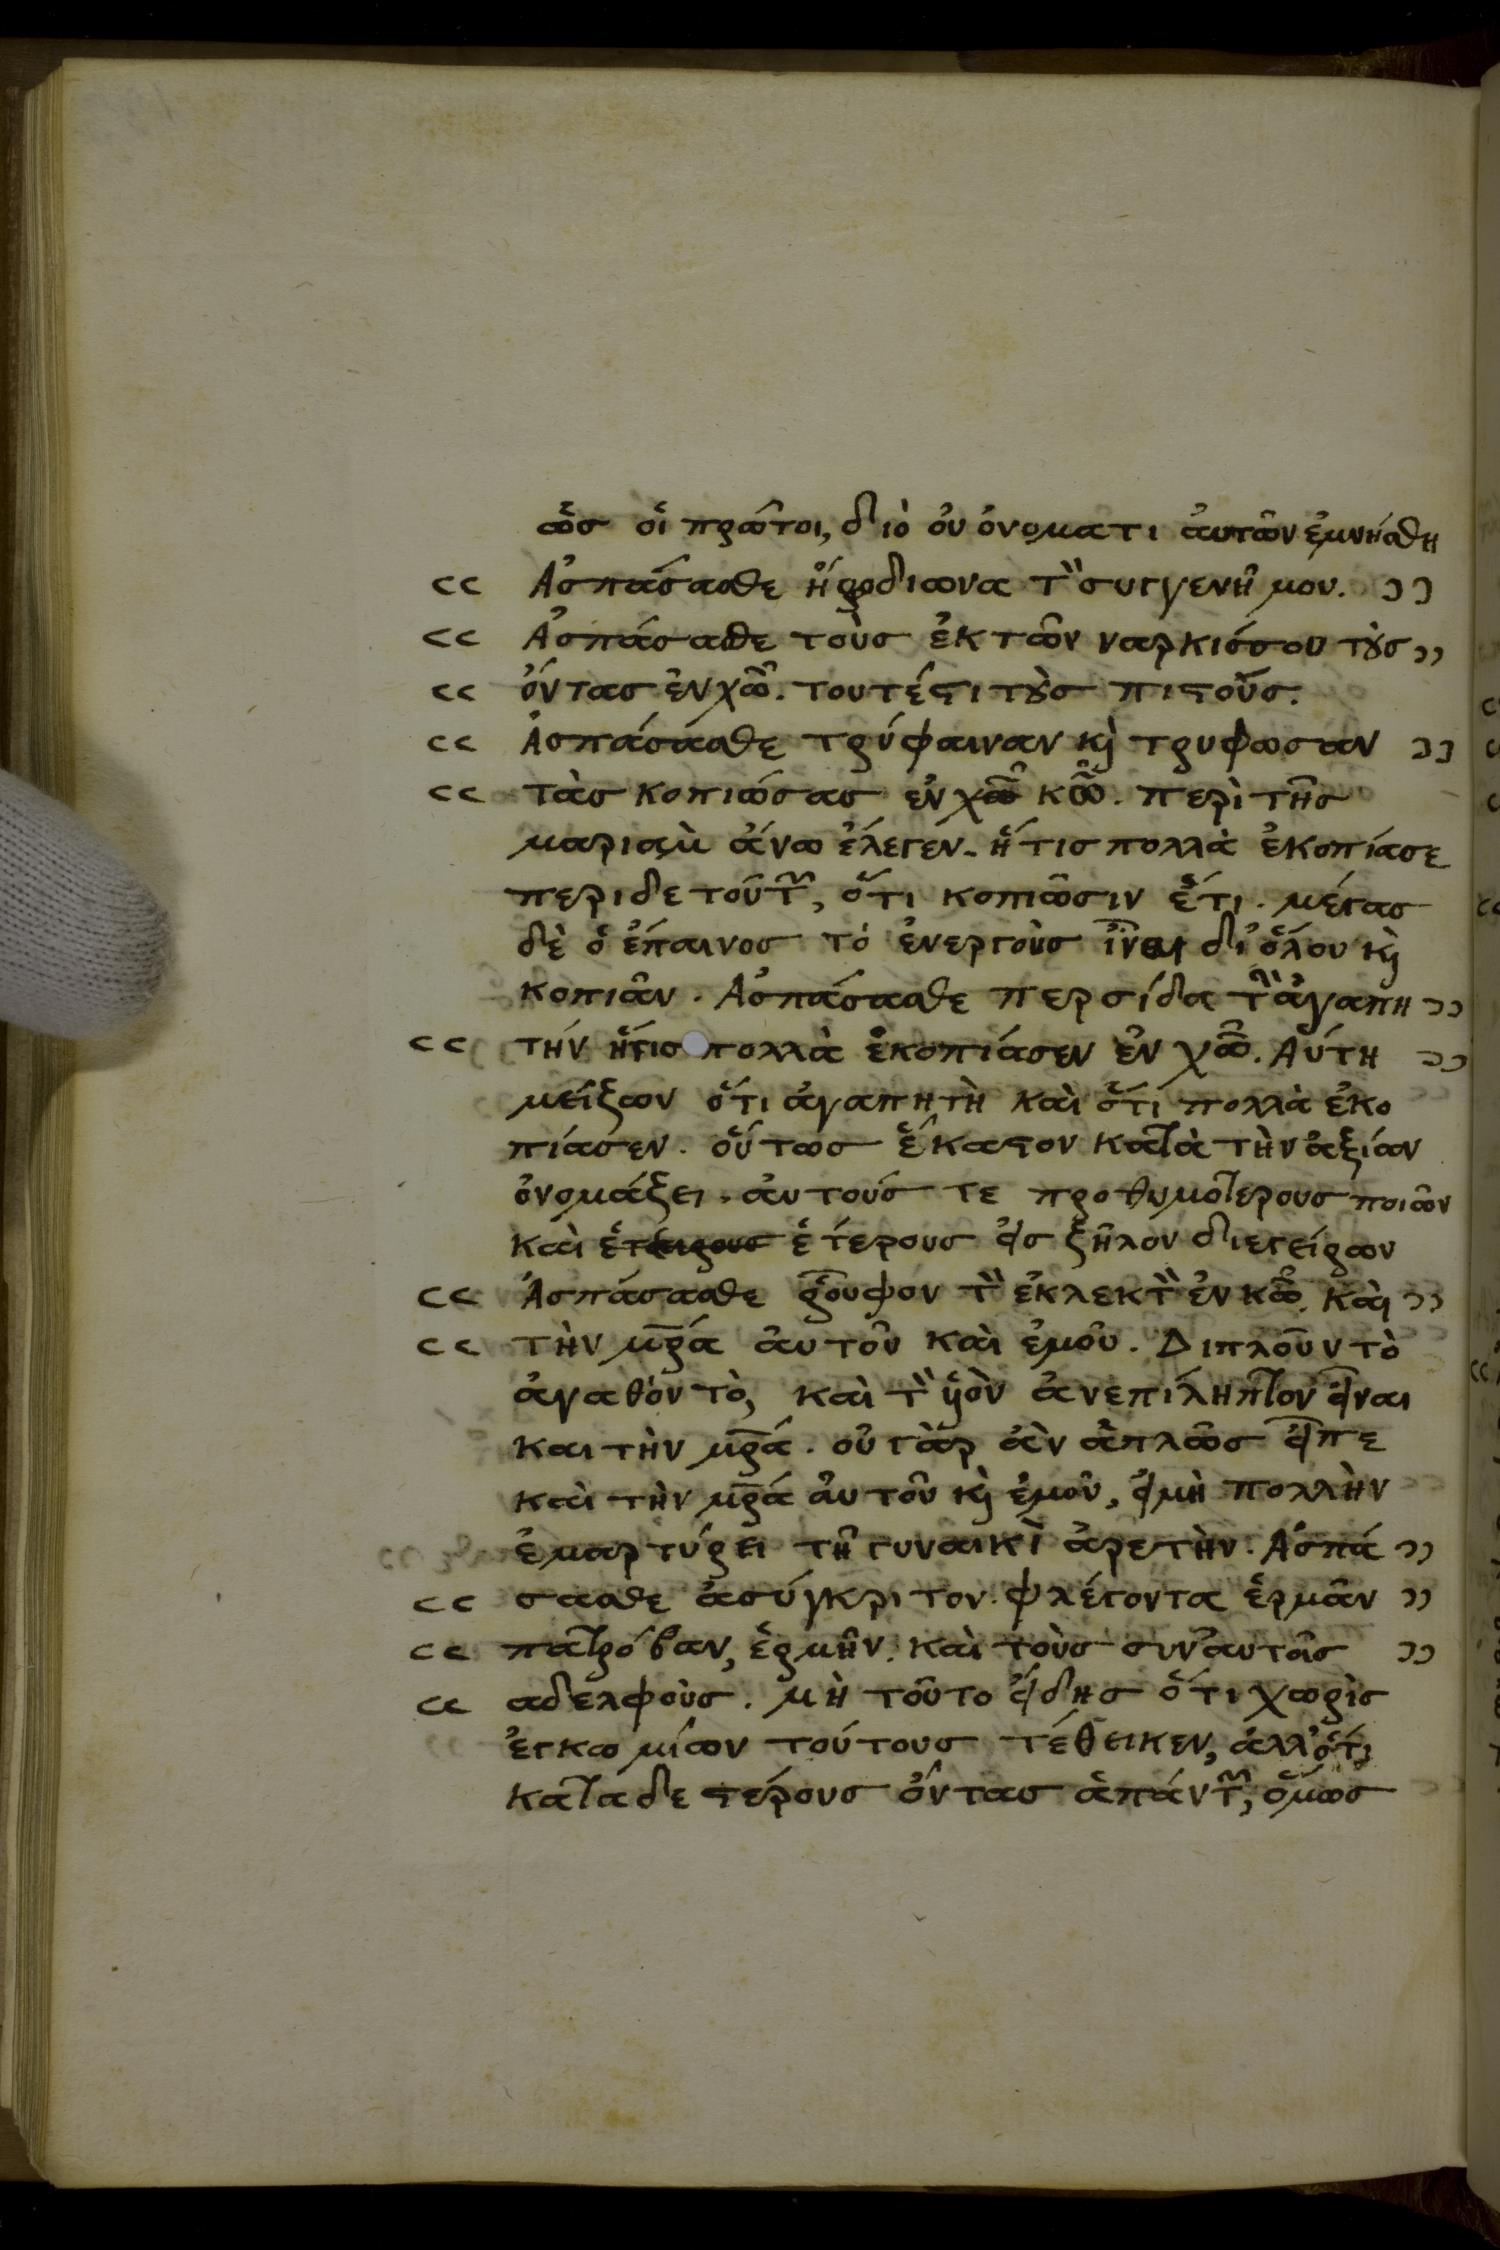 ὧσ οἱ πρῶτοι, διὸ οὐ ὀνοματι ἀυτῶν ἐμνήσθη
cc Ἀσπάσασθε ἡροδιωνα τ̀ συγγενῆ μου. ))
cc Ἀσπάσασθε τοὺσ ἐκ τῶν ναρκίσσου τȣ̀σ ))
cc ὄντασ ἐν χῶ. τουτέστι τȣ̀σ πιστοῦσ.
cc Ἀσπάσασθε τρύφαιναν κὶ τρυφωσαν ))
cc τὰσ κοπιώσασ ἐν χῶ κῶ. περὶ τῆσ
μαριαμ ἄνω ἔλεγέν. ἥτισ πολλὰ ἐκοπίασε
περι δε τούτ̃, ὅτι κοπιῶσιν ἔτι. μέγασ
δὲ ὁ ἔπαινοσ τό ἐνεργοὺσ εἶναι δι' ὅλου κὶ
κοπιᾶν. Ἀσπάσασθε περσίδα τ̀ ἀγαπη ))
cc τήν ἥτισ πολλὰ ἐκοπίασεν ἐν χῶ. Αὕτη ))
μείζων ὅτι ἀγαπητὴ καὶ ὅτι πολλὰ ἐκο
πίασεν. οὕτωσ ἕκαστον κατὰ τὴν ἀξίαν
ὀνομάζει. ἀυτούσ τε προθυμοτερουσ ποιῶν
καὶ ἑτέρουσ εἰσ ζῆλον διεγείρων
cc Ἀσπάσασθε ῥουφον τ̀ ἐκλεκτ̀ ἐν κῶ. καὶ ))
cc τὴν μρ̄ά ἀυτοῦ καὶ ἐμοῦ. Διπλοῦν τὸ
ἀγαθὸν τὸ, καὶ τ̀ υἱὸν ἀνεπίληπτον εἶναι
και τὴν μρ̄ά. οὐ γὰρ ἀὲν ἁπλῶσ εἶπε
καὶ τὴν μρ̄ά ἀυτοῦ κὶ ἐμοῦ, εἰ μὴ πολλὴν
ἐμαρτύρει τῆ γυναικὶ ἀρετὴν. Ἀσπά ))
cc σασθε ἀσύγκριτον. φλέγοντα ἑρμᾶν ))
cc πατρόβαν, ἑρμῆν. καὶ τοὺσ συν ἀυτοῖσ ))
cc αδελφοὺσ. μὴ τοῦτο εἴδησ ὅτι χωρὶσ
ἐγκωμίων τούτουσ τέθεικεν, ἀλλ' ὅτι
καταδεστέρουσ ὄντασ ἁπάντ̃, ὅμωσ